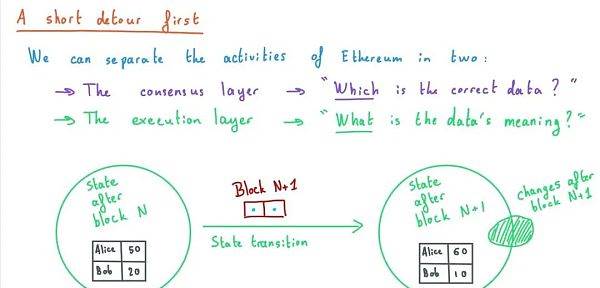 A short detour first
We can separate the activities of Ethereum in two:
→ The consensus layer → "Which is the correct data?"
→ The execution layer → "What is the data's meaning?"
State
after
block N
Alice 50
Bob 20
Block N+1
State transition
State
after
block N+1
Alice 60
Bob 10
changes after
block N+1